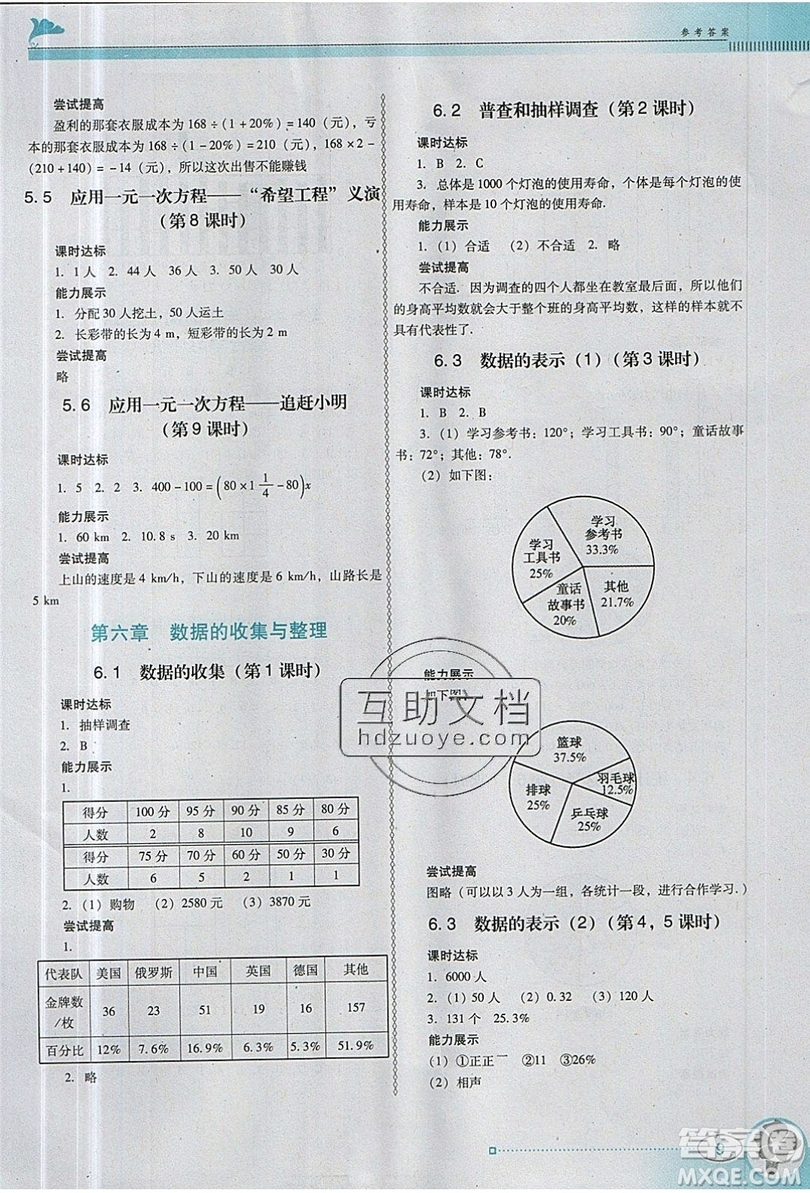 参考答案
尝试提高
盈利的那套衣服成本为 168÷(1+20%)=140（元），亏
本的那套衣服成本为 168÷(1-20%)=210（元），168×2-
(210+140)=-14（元），所以这次出售不能赚钱
5.5 应用一元一次方程——“希望工程”义演
（第8课时）
课时达标
1. 1人 2. 44人 36人 3. 50人 30人
能力展示
1. 分配30人挖土，50人运土
2. 长彩带的长为4 m，短彩带的长为2 m
尝试提高
略
5.6 应用一元一次方程——追赶小明
（第9课时）
课时达标
1. 5 2. 2 3. 400-100=(80×1 1/4-80)x
能力展示
1. 60 km 2. 10.8 s 3. 20 km
尝试提高
上山的速度是4 km/h，下山的速度是6 km/h，山路长是
5 km
第六章 数据的收集与整理
6.1 数据的收集（第1课时）
课时达标
1. 抽样调查
2. B
能力展示
1.
得分 100分 95分 90分 85分 80分
人数 2 8 10 9 6
得分 75分 70分 60分 50分 30分
人数 6 5 2 1 1
2.（1）购物 （2）2580元 （3）3870元
尝试提高
1.
代表队 美国 俄罗斯 中国 英国 德国 其他
金牌数
/枚 36 23 51 19 16 157
百分比 12% 7.6% 16.9% 6.3% 5.3% 51.9%
2. 略
6.2 普查和抽样调查（第2课时）
课时达标
1. B 2. C
3. 总体是1000个灯泡的使用寿命，个体是每个灯泡的使
用寿命，样本是10个灯泡的使用寿命.
能力展示
1.（1）合适 （2）不合适 2. 略
尝试提高
不合适. 因为调查的四个人都坐在教室最后面，所以他们
的身高平均数就会大于整个班的身高平均数，这样的样本就不
具有代表性了.
6.3 数据的表示（1）（第3课时）
课时达标
1. B 2. B
3.（1）学习参考书：120°；学习工具书：90°；童话故事
书：72°；其他：78°.
（2）如下图：
学习
参考书
33.3%
学习
工具书
25%
童话
故事书
20%
其他
21.7%
能力展示
如下图
篮球
37.5%
羽毛球
12.5%
排球
25%
乒乓球
25%
尝试提高
图略（可以以3人为一组，各统计一段，进行合作学习.）
6.3 数据的表示（2）（第4，5课时）
课时达标
1. 6000人
2.（1）50人 （2）0.32 （3）120人
3. 131个 25.3%
能力展示
（1）①正正一 ②11 ③26%
（2）相声
互助文档
hdzuoye.com
9
答案圈
MXQE.COM